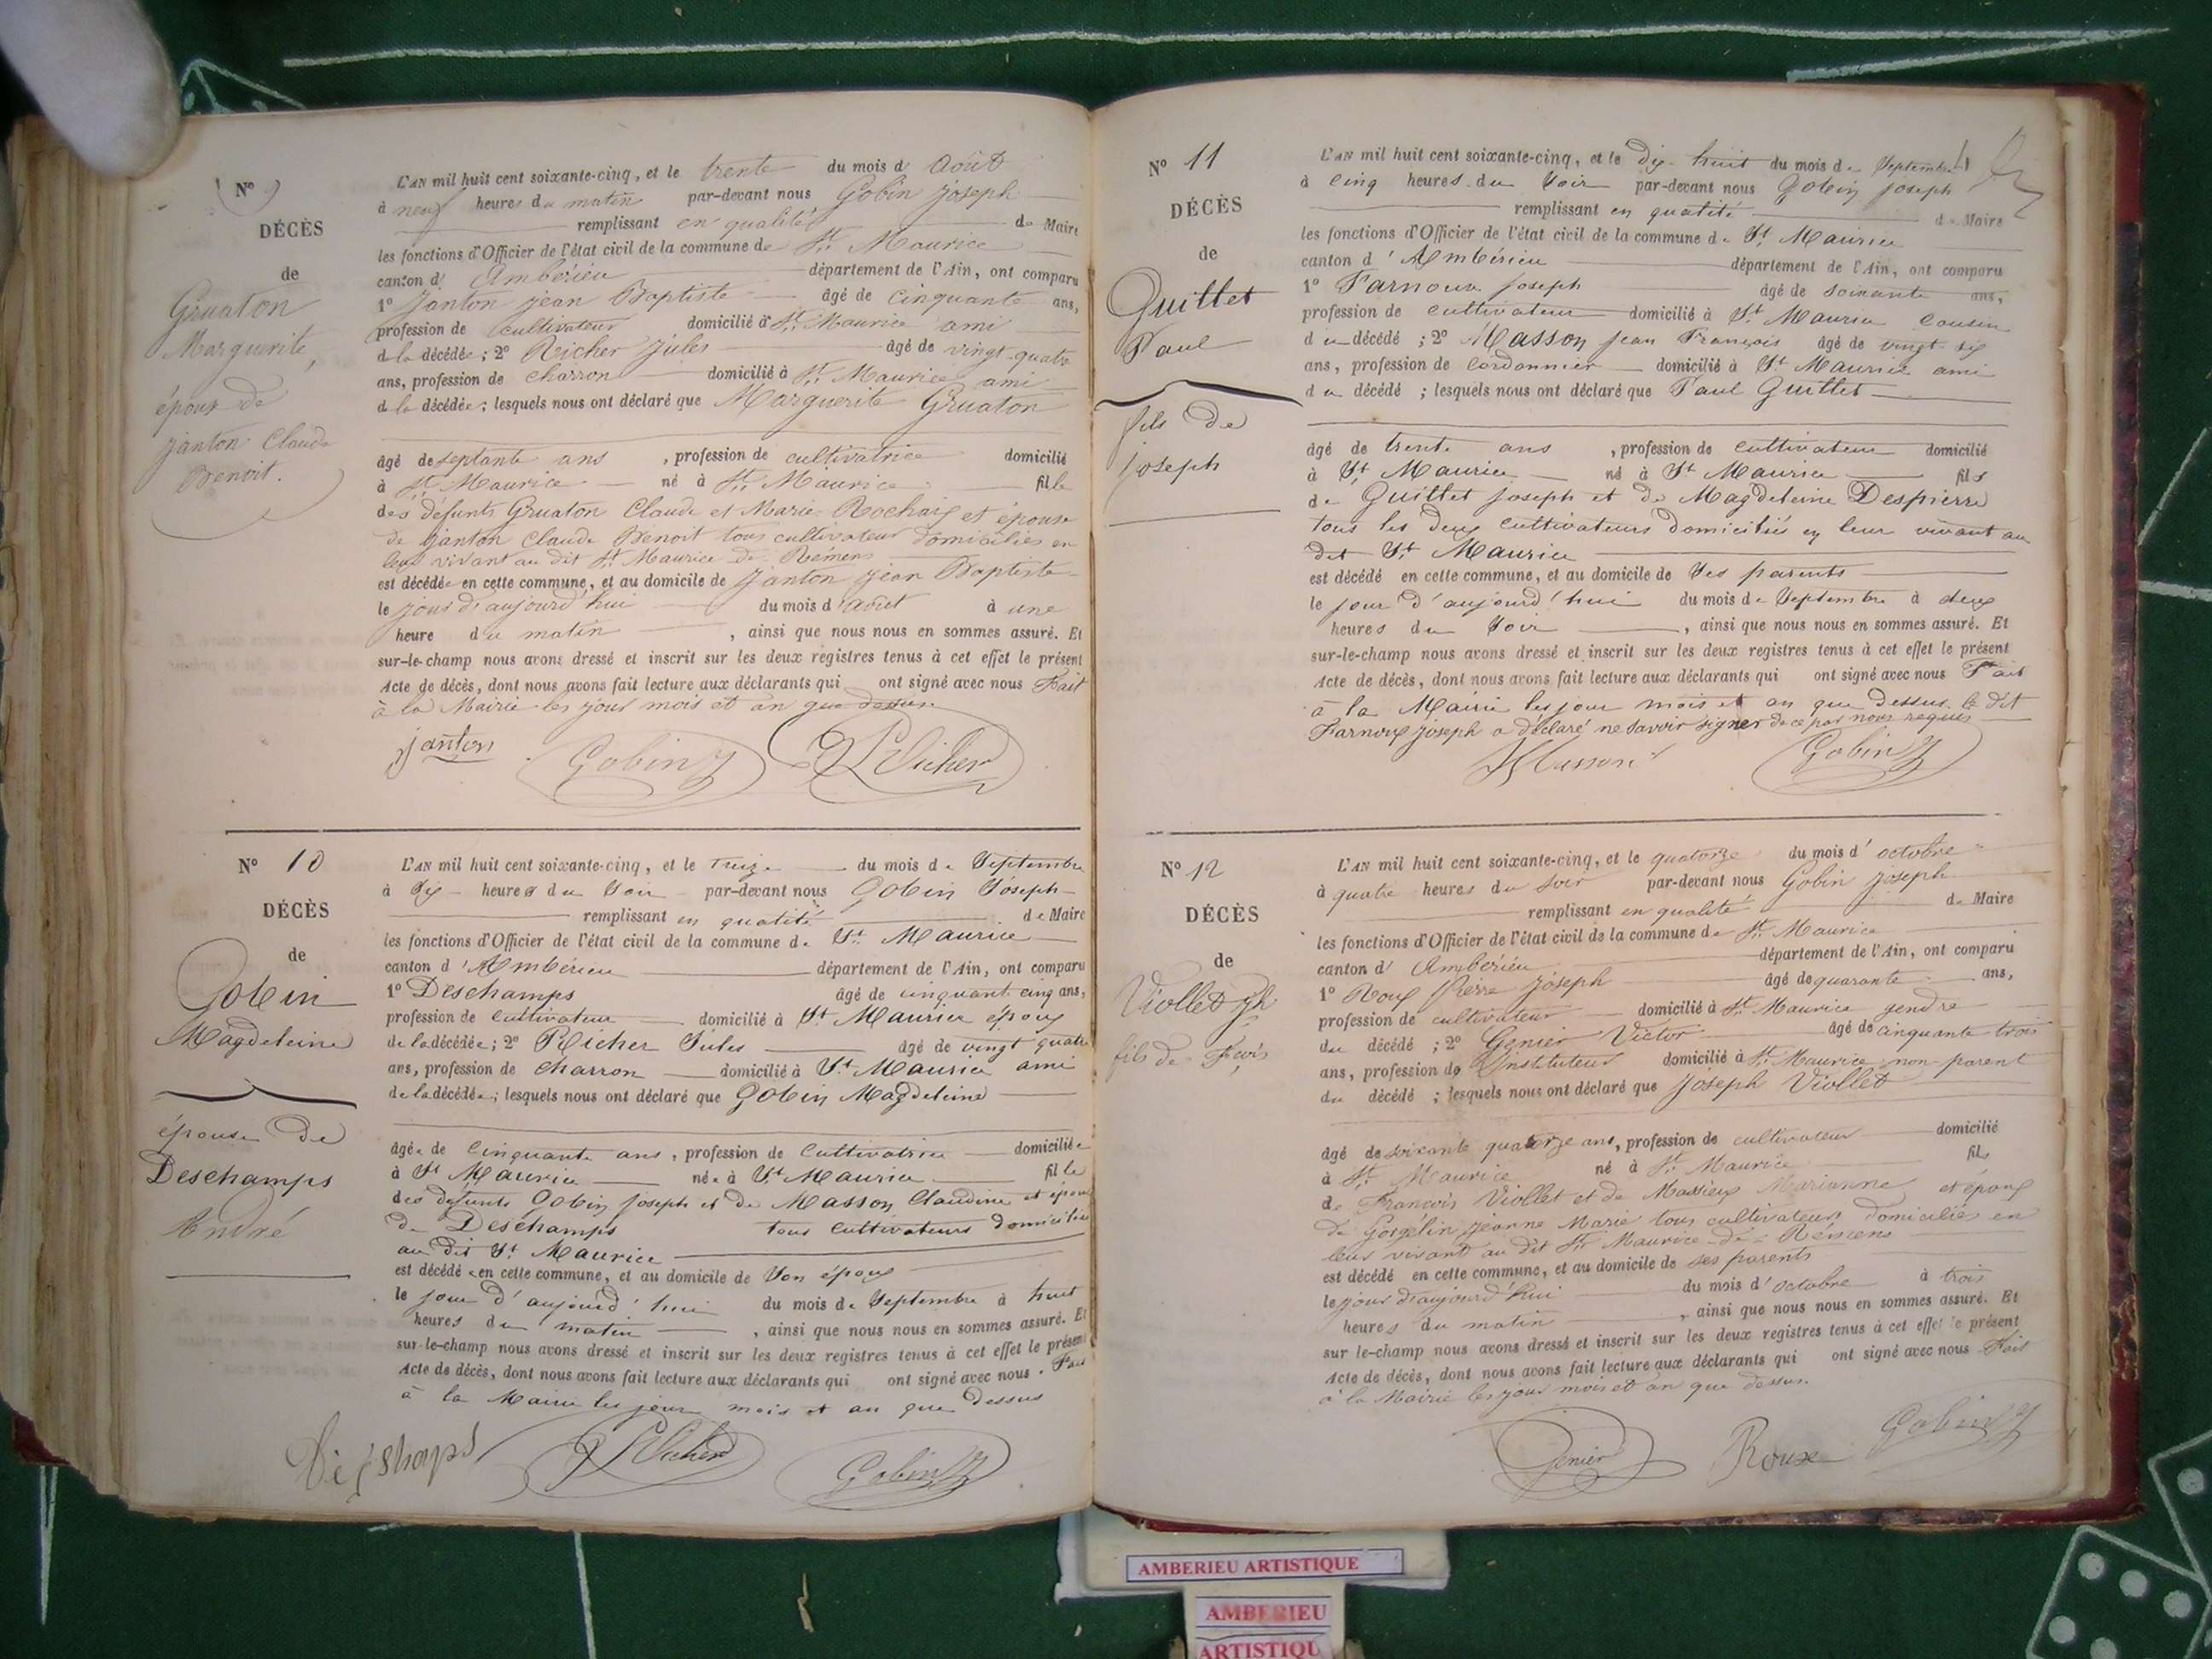 N° 9
DÉCÈS
de
Gruaton
Marguerite,
épouse de
Janton Claude
Benoit.
L'AN mil huit cent soixante-cinq, et le trente du mois d' Août
à neuf heures du matin par-devant nous Gobin Joseph
remplissant en qualité de Maire
les fonctions d'Officier de l'état civil de la commune de St. Maurice
canton d' Ambérieu département de l'Ain, ont comparu
1° Janton jean Baptiste âgé de cinquante ans,
profession de cultivateur domicilié à St. Maurice ami
de la décédée ; 2° Richer Jules âgé de vingt-quatre
ans, profession de charron domicilié à St. Maurice ami
de la décédée ; lesquels nous ont déclaré que Marguerite Gruaton
âgé de septante ans , profession de cultivatrice domicilié
à St. Maurice né à St. Maurice fille
des défunts Gruaton Claude et Marie Rochaix et épouse
de Janton Claude Benoit tous cultivateurs domiciliés en
leur vivant au dit St. Maurice de Rémens
est décédée en cette commune, et au domicile de Janton jean Baptiste
le jour d'aujourd'hui du mois d'août à une
heure du matin , ainsi que nous nous en sommes assuré. Et
sur-le-champ nous avons dressé et inscrit sur les deux registres tenus à cet effet le présent
Acte de décès, dont nous avons fait lecture aux déclarants qui ont signé avec nous Fait
à la Mairie les jour mois et an que dessus.
Janton Gobin J Richer
N° 10
DÉCÈS
de
Gobin
Magdeleine
épouse de
Deschamps
André
L'AN mil huit cent soixante-cinq, et le treize du mois de Septembre
à Six heures du Soir par-devant nous Gobin Joseph
remplissant en qualité de Maire
les fonctions d'Officier de l'état civil de la commune de St. Maurice
canton d'Ambérieu département de l'Ain, ont comparu
1° Deschamps âgé de cinquant cinq ans,
profession de Cultivateur domicilié à St Maurice époux
de la décédée ; 2° Richer Jules âgé de vingt quatre
ans, profession de Charron domicilié à St. Maurice ami
de la décédée ; lesquels nous ont déclaré que Gobin Magdeleine
âgée de Cinquante ans , profession de Cultivatrice domiciliée
à St Maurice née à St. Maurice fille
des défunts Gobin Joseph et de Masson Claudine et épouse
de Deschamps tous Cultivateurs domiciliés
au dit St Maurice
est décédée en cette commune, et au domicile de Son époux
le jour d'aujourd'hui du mois de Septembre à huit
heures du matin , ainsi que nous nous en sommes assuré. Et
sur-le-champ nous avons dressé et inscrit sur les deux registres tenus à cet effet le présent
Acte de décès, dont nous avons fait lecture aux déclarants qui ont signé avec nous . Fait
à la Mairie les jour mois et an que dessus
Richer Gobin J
N° 11
DÉCÈS
de
Quittet
Paul
fils de
Joseph
L'AN mil huit cent soixante-cinq, et le dix-huit du mois de Septembre
à Cinq heures du Soir par-devant nous Gobin Joseph
remplissant en qualité de Maire
les fonctions d'Officier de l'état civil de la commune de St. Maurice
canton d'Ambérieu département de l'Ain, ont comparu
1° Farnoux Joseph âgé de soixante ans,
profession de cultivateur domicilié à St. Maurice Cousin
du décédé ; 2° Masson Jean François âgé de vingt six
ans, profession de Cordonnier domicilié à St Maurice ami
du décédé ; lesquels nous ont déclaré que Paul Quittet
âgé de trente ans , profession de Cultivateur domicilié
à St. Maurice né à St Maurice fils
de Quittet Joseph et de Magdeleine Despierre
tous les deux Cultivateurs domiciliés en leur vivant au
dit St. Maurice
est décédé en cette commune, et au domicile de Ses parents
le jour d'aujourd'hui du mois de Septembre à deux
heures du Soir , ainsi que nous nous en sommes assuré. Et
sur-le-champ nous avons dressé et inscrit sur les deux registres tenus à cet effet le présent
Acte de décès, dont nous avons fait lecture aux déclarants qui ont signé avec nous Fait
à la Mairie les jour mois et an que dessus. le dit
Farnoux Joseph a déclaré ne savoir signer de ce par nous requis
Masson Gobin J
N° 12
DÉCÈS
de
Viollet Jh
fils de Fçois
L'AN mil huit cent soixante-cinq, et le quatorze du mois d' octobre
à quatre heures du soir par-devant nous Gobin Joseph
remplissant en qualité de Maire
les fonctions d'Officier de l'état civil de la commune de St. Maurice
canton d' Ambérieu département de l'Ain, ont comparu
1° Roux Pierre Joseph âgé de quarante ans,
profession de cultivateur domicilié à St. Maurice gendre
du décédé ; 2° Genier Victor âgé de cinquante-trois
ans, profession de Instituteur domicilié à St. Maurice non parent
du décédé ; lesquels nous ont déclaré que Joseph Viollet
âgé de soixante quatorze ans, profession de cultivateur domicilié
à St. Maurice né à St. Maurice fils
de François Viollet et de Massieux Marianne et époux
de Gorgelin Jeanne Marie tous cultivateurs domiciliés en
leur vivant au dit St. Maurice de Rémens
est décédé en cette commune, et au domicile de ses parents
le jour d'aujourd'hui du mois d' octobre à trois
heures du matin , ainsi que nous nous en sommes assuré. Et
sur le-champ nous avons dressé et inscrit sur les deux registres tenus à cet effet le présent
Acte de décès, dont nous avons fait lecture aux déclarants qui ont signé avec nous Fait
à la Mairie les jour mois et an que dessus.
Genier Roux Gobin J
AMBERIEU ARTISTIQUE
AMBERIEU
ARTISTIQU